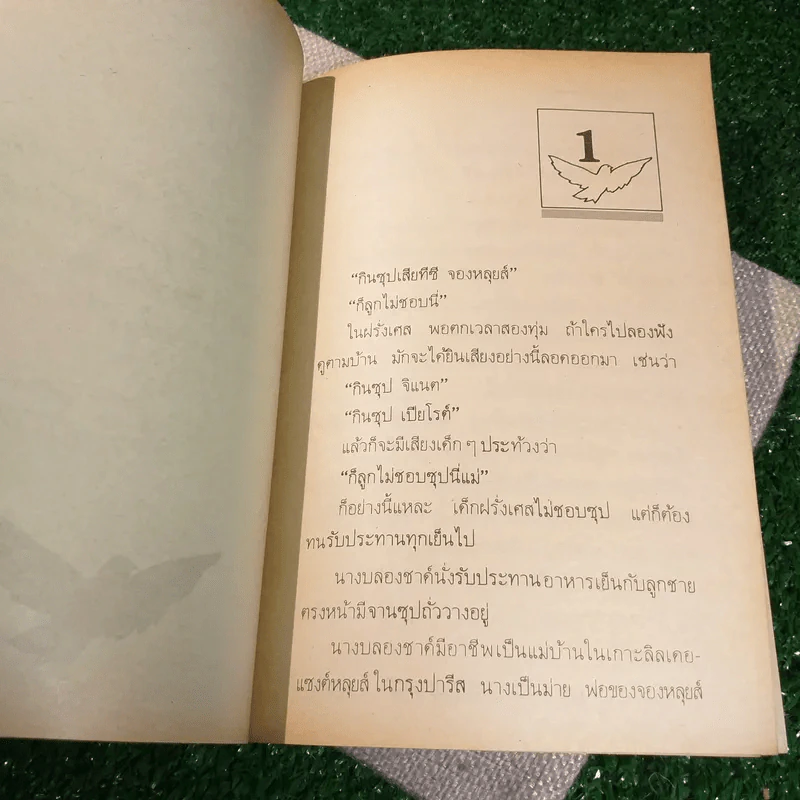 1
“กินซุปเสียทีซี จองหลุยส์”
“ก็ลูกไม่ชอบนี่”
ในฝรั่งเศส พอตกเวลาสองทุ่ม ถ้าใครไปลองฟัง
ดูตามบ้าน มักจะได้ยินเสียงอย่างนี้ลอดออกมา เช่นว่า
“กินซุป จิแนต”
“กินซุป เปียโรต์”
แล้วก็จะมีเสียงเด็ก ๆ ประท้วงว่า
“ก็ลูกไม่ชอบซุปนี่แม่”
ก็อย่างนี้แหละ เด็กฝรั่งเศสไม่ชอบซุป แต่ก็ต้อง
ทนรับประทานทุกเย็นไป
นางบลองชาด์นั่งรับประทานอาหารเย็นกับลูกชาย
ตรงหน้ามีจานซุปถั่ววางอยู่
นางบลองชาด์มีอาชีพเป็นแม่บ้านในเกาะลิลเดอ-
แซงต์หลุยส์ ในกรุงปารีส นางเป็นม่าย พ่อของจองหลุยส์